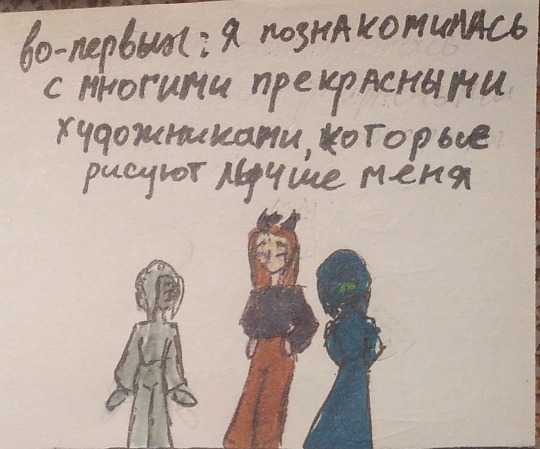 во-первых: я познакомилась
с многими прекрасными
художниками, которые
рисуют лучше меня